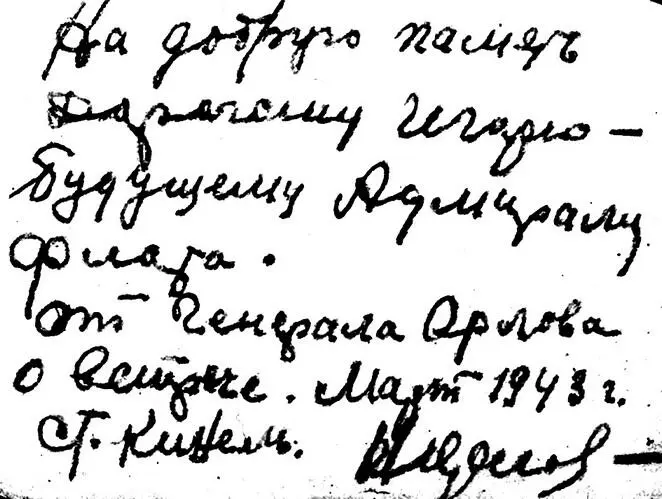 На добрую память
дорогому Игорю –
будущему Адмиралу
флота.
от Генерала Орлова
о встрече. Март 1943 г.
ст. Кинель.